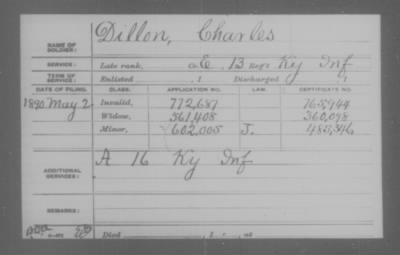 NAME OF SOLDIER: Dillon, Charles
SERVICE: Late rank, Co. E, 13 Reg't Ky Inf
TERM OF SERVICE: Enlisted , 1 Discharged , 1
DATE OF FILING. CLASS. APPLICATION NO. LAW. CERTIFICATE NO.
1890 May 2 Invalid, 772,687 765,944
Widow, 561,408 360,098
Minor, 602,005 J. 485,346
ADDITIONAL SERVICES: A 16 Ky Inf
REMARKS:
Died , 1 , at